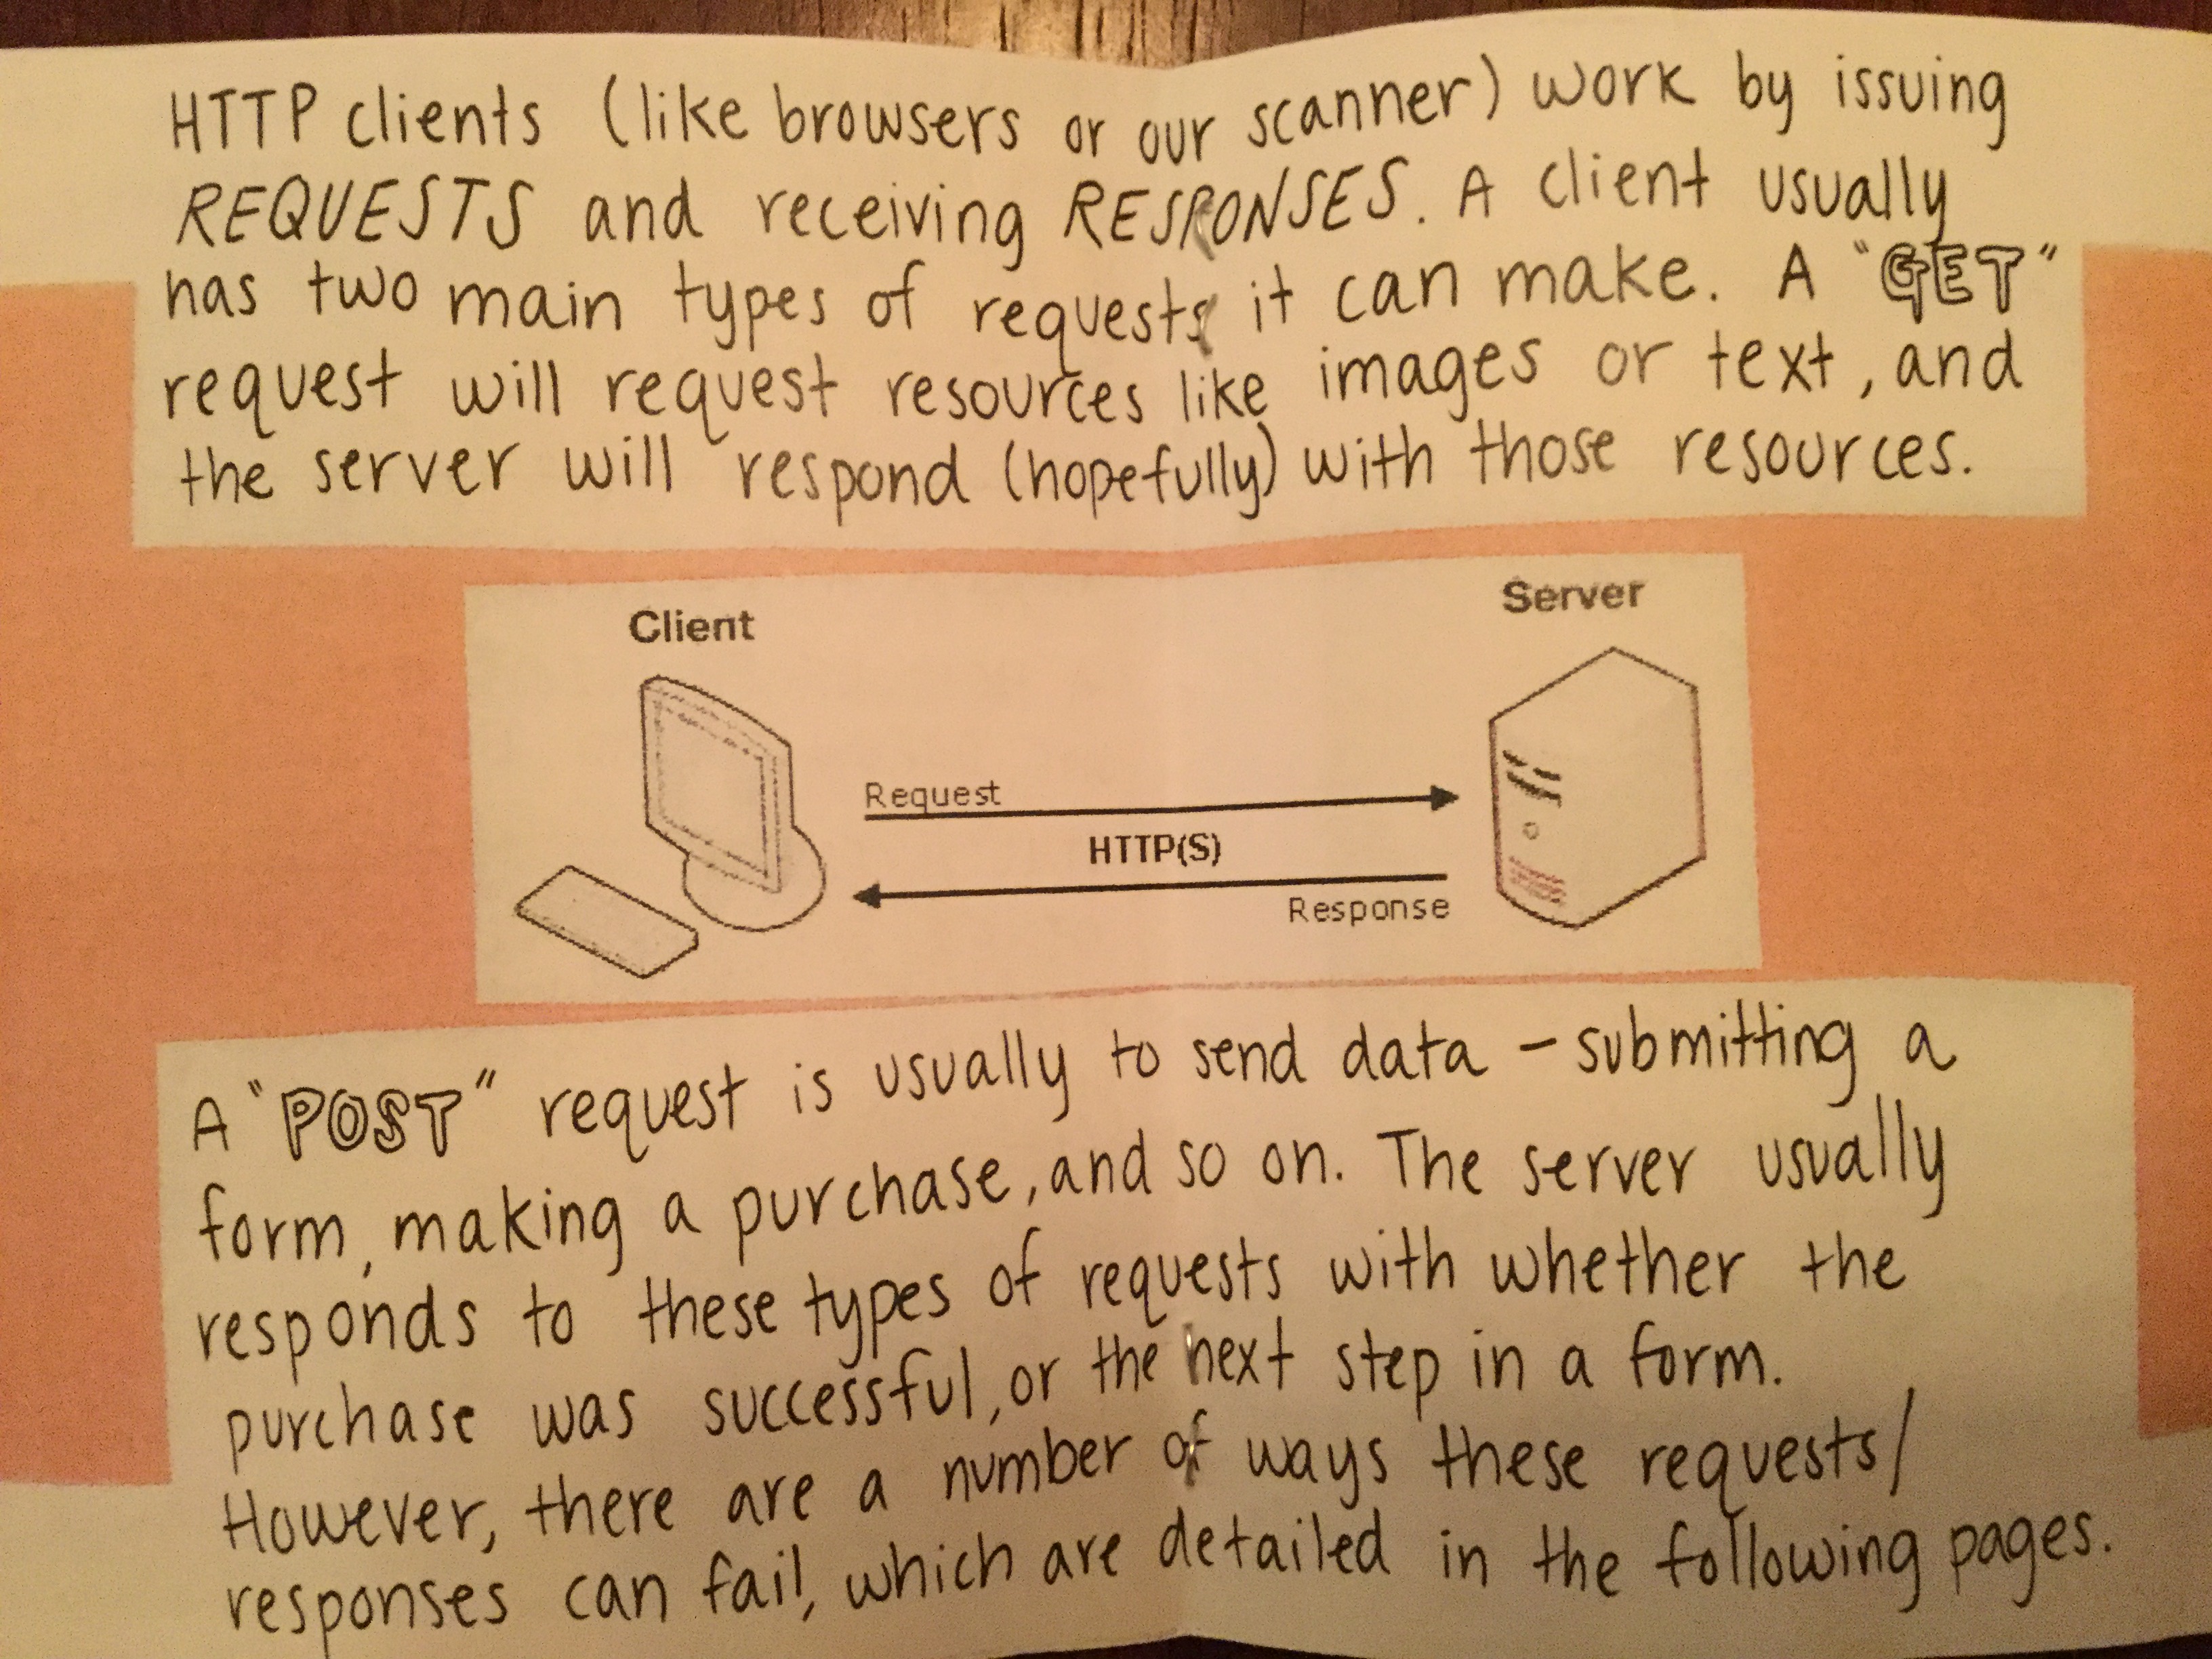 HTTP clients (like browsers or our scanner) work by issuing
REQUESTS and receiving RESPONSES. A client usually
has two main types of requests it can make. A "GET"
request will request resources like images or text, and
the server will respond (hopefully) with those resources.
Client
Server
Request
HTTP(S)
Response
A "POST" request is usually to send data - submitting a
form, making a purchase, and so on. The server usually
responds to these types of requests with whether the
purchase was successful, or the next step in a form.
However, there are a number of ways these requests/
responses can fail, which are detailed in the following pages.